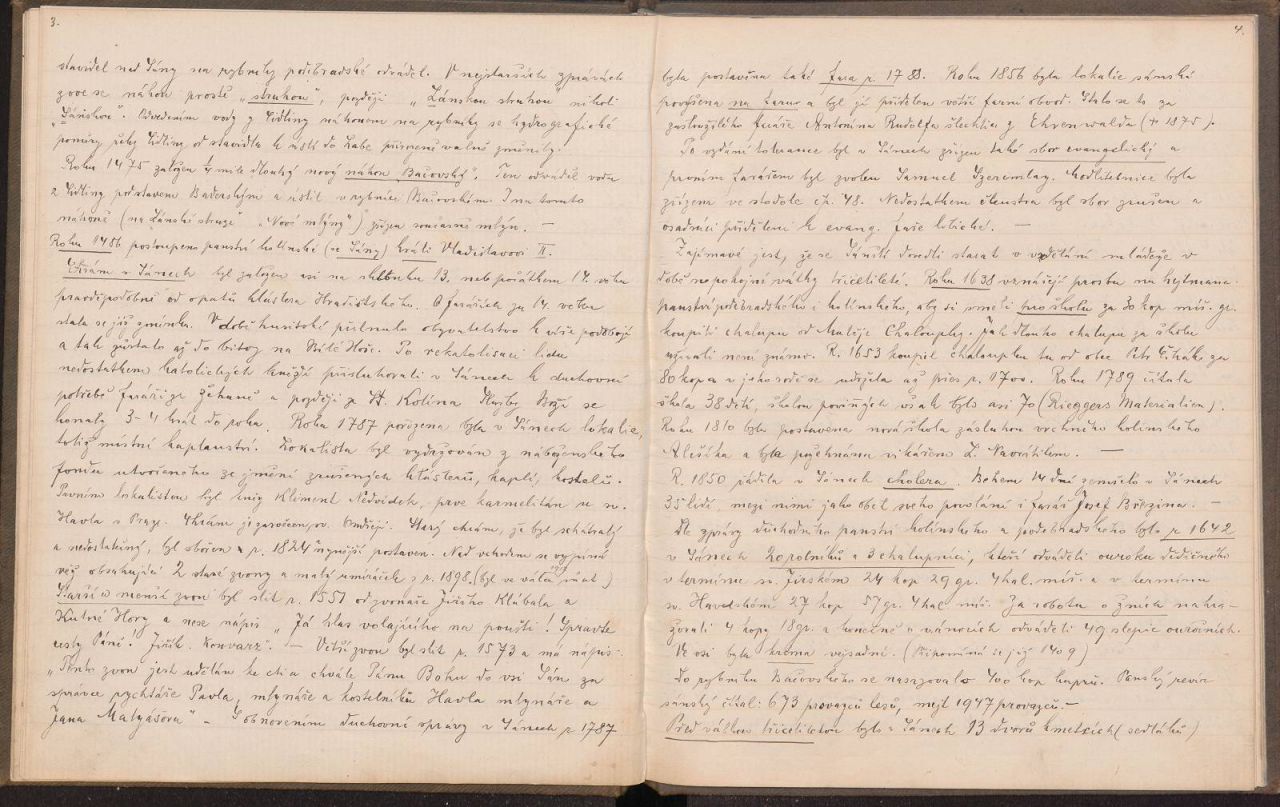 3.
stavidel nad Sány na rybníky poděbradské odváděl. V nejstarších zprávách
zove se náhon prostě „struhou“, později „Lánskou struhou“ nikoli
„Sánskou“. Odvedením vody z Cidliny náhonem na rybníky se hydrografické
poměry řeky Cidliny od stavidla k ústí do Labe přirozeně valně změnily.
Roku 1475 založen ½ míle dlouhý nový náhon Bačovský“. Ten odváděl vodu
z Cidliny pod stavem Baderským a ústil v rybníce Bačovském. I na tomto
náhoně (na Lánské struze „Nové mlýny“) zřízen současně mlýn. —
Roku 1486 postoupeno panství kolínské (se Sány) králi Vladislavovi II.
Chrám v Sánech byl založen asi na sklonku 13. neb počátkem 14. věku
pravděpodobně od opatů kláštera Hradištského. O farářích ze 14. věku
stala se již zmínka. V době husitské přilnulo obyvatelstvo k víře podobojí
a tak zůstalo až do bitvy na Bílé Hoře. Po rekatolisaci lidu
nedostatkem katolických kněží přisluhovali v Sánech k duchovní
potřebě faráři ze Žehuně a později ze St. Kolína. Služby Boží se
konaly 3-4 krát do roka. Roku 1787 pořízena byla v Sánech lokalie,
totiž místní kaplanství. Lokalista byl vydržován z náboženského
fondu utvořeného ze jmění zrušených klášterů, kaplí, kostelů.
Prvním lokalistou byl kněz Kliment Nedvídek, prve karmelitán u sv.
Havla v Praze. Chrám je zasvěcen sv. Ondřeji. Starý chrám, je byl sešátralý
a nedostatečný, byl zbořen a r. 1824 nynější postaven. Nad vchodem se vypíná
věž obsahující 2 staré zvony a malý umíráček z r. 1898. (byl ve válce vzat)
Starší a menší zvon byl slit r. 1551 od zvonaře Jiřího Klábala a
Kutné Hory a nese nápis „Já hlas volajícího na poušti! Spravte
cesty Páně! Jiřík Konvarz“. — Větší zvon byl slit r. 1573 a má nápis:
„Tento zvon jest udělán ke cti a chvále Pánu Bohu do vsi Sán za
správce rychtáře Pavla, mlynáře a kostelníků Havla mlynáře a
Jana Matyášova“ — S obnovením duchovní správy v Sánech r. 1787
4.
byla postavena také fara r. 1788. Roku 1856 byla lokalie sánská
povýšena na faru a byl jí přidělen větší farní obvod. Stalo se to za
zasloužilého faráře Antonína Rudolfa šlechtice z Ehrenwaldu († 1875).
Po vydání tolerance byl v Sánech zřízen také sbor evangelický a
prvním farářem byl zvolen Samuel Szeremlay. Modlitebnice byla
zřízena ve stodole čp. 48. Nedostatkem členstva byl sbor zrušen a
osadníci přiděleni k evang. faře libické. —
Zajímavé jest, že se Sánští dovedli starat o vzdělání mládeže v
době nepokojné války třicetileté. Roku 1638 vznášejí prosbu na hejtmana
panství poděbradského i kolínského, aby si směli pro školu za 30 kop míš. gr.
koupiti chalupu od Matěje Chaloupky. Jak dlouho chalupu za školu
užívali není známo. R. 1653 koupil chaloupku tu od obce Petr Čihák za
80 kop a v jeho rodě se udržela až přes r. 1700. Roku 1789 čítala
škola 38 dětí, školou povinných však bylo asi 70 (Rieggers Materialien).
Roku 1810 byla postavena nová škola zásluhou vrchního kolínského
Aluška a byla vysvěcena vikářem L. Navrátilem. —
R. 1850 řádila v Sánech cholera. Během 14 dní zemřelo v Sánech
35 lidí, mezi nimi jako oběť svého povolání i farář Josef Březina. —
Dle zprávy důchodního panství kolínského a poděbradského bylo r. 1642
v Sánech 20 rolníků a 3 chalupníci, kteří odváděli ouroku dědičného
v termínu sv. Jirském 24 kop 29 gr. 4 hal. míš. a v termínu
sv. Havelském 27 kop 57 gr. 4 hal. míš. Za robotu o žních nahra-
zovali 4 kopy 18 gr. a konečně o vánocích odváděli 49 slepic ouročních.
Ve vsi byla krčma výsadní. (Připomíná se již 1409)
Do rybníka Bačovského se nasazovalo 400 kop kaprů. Panský revír
sánský čítal: 673 provazců lesů, mejt 1947 provazců. —
Před válkou třicetiletou bylo v Sánech 13 dvorů kmetcích (sedláků)